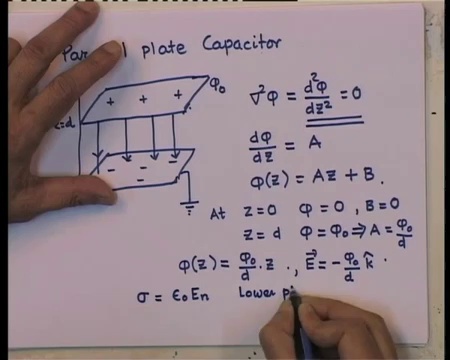 Par l plate Capacitor
φ₀
+ + +
=d
- - -
- -
-
∇²φ = d²φ/dz² = 0
dφ/dz = A
φ(z) = Az + B.
At z=0 φ=0, B=0
z=d φ=φ₀ ⇒ A = φ₀/d
φ(z) = φ₀/d · z ., E⃗ = - φ₀/d k̂ .
σ = ϵ₀En Lower p